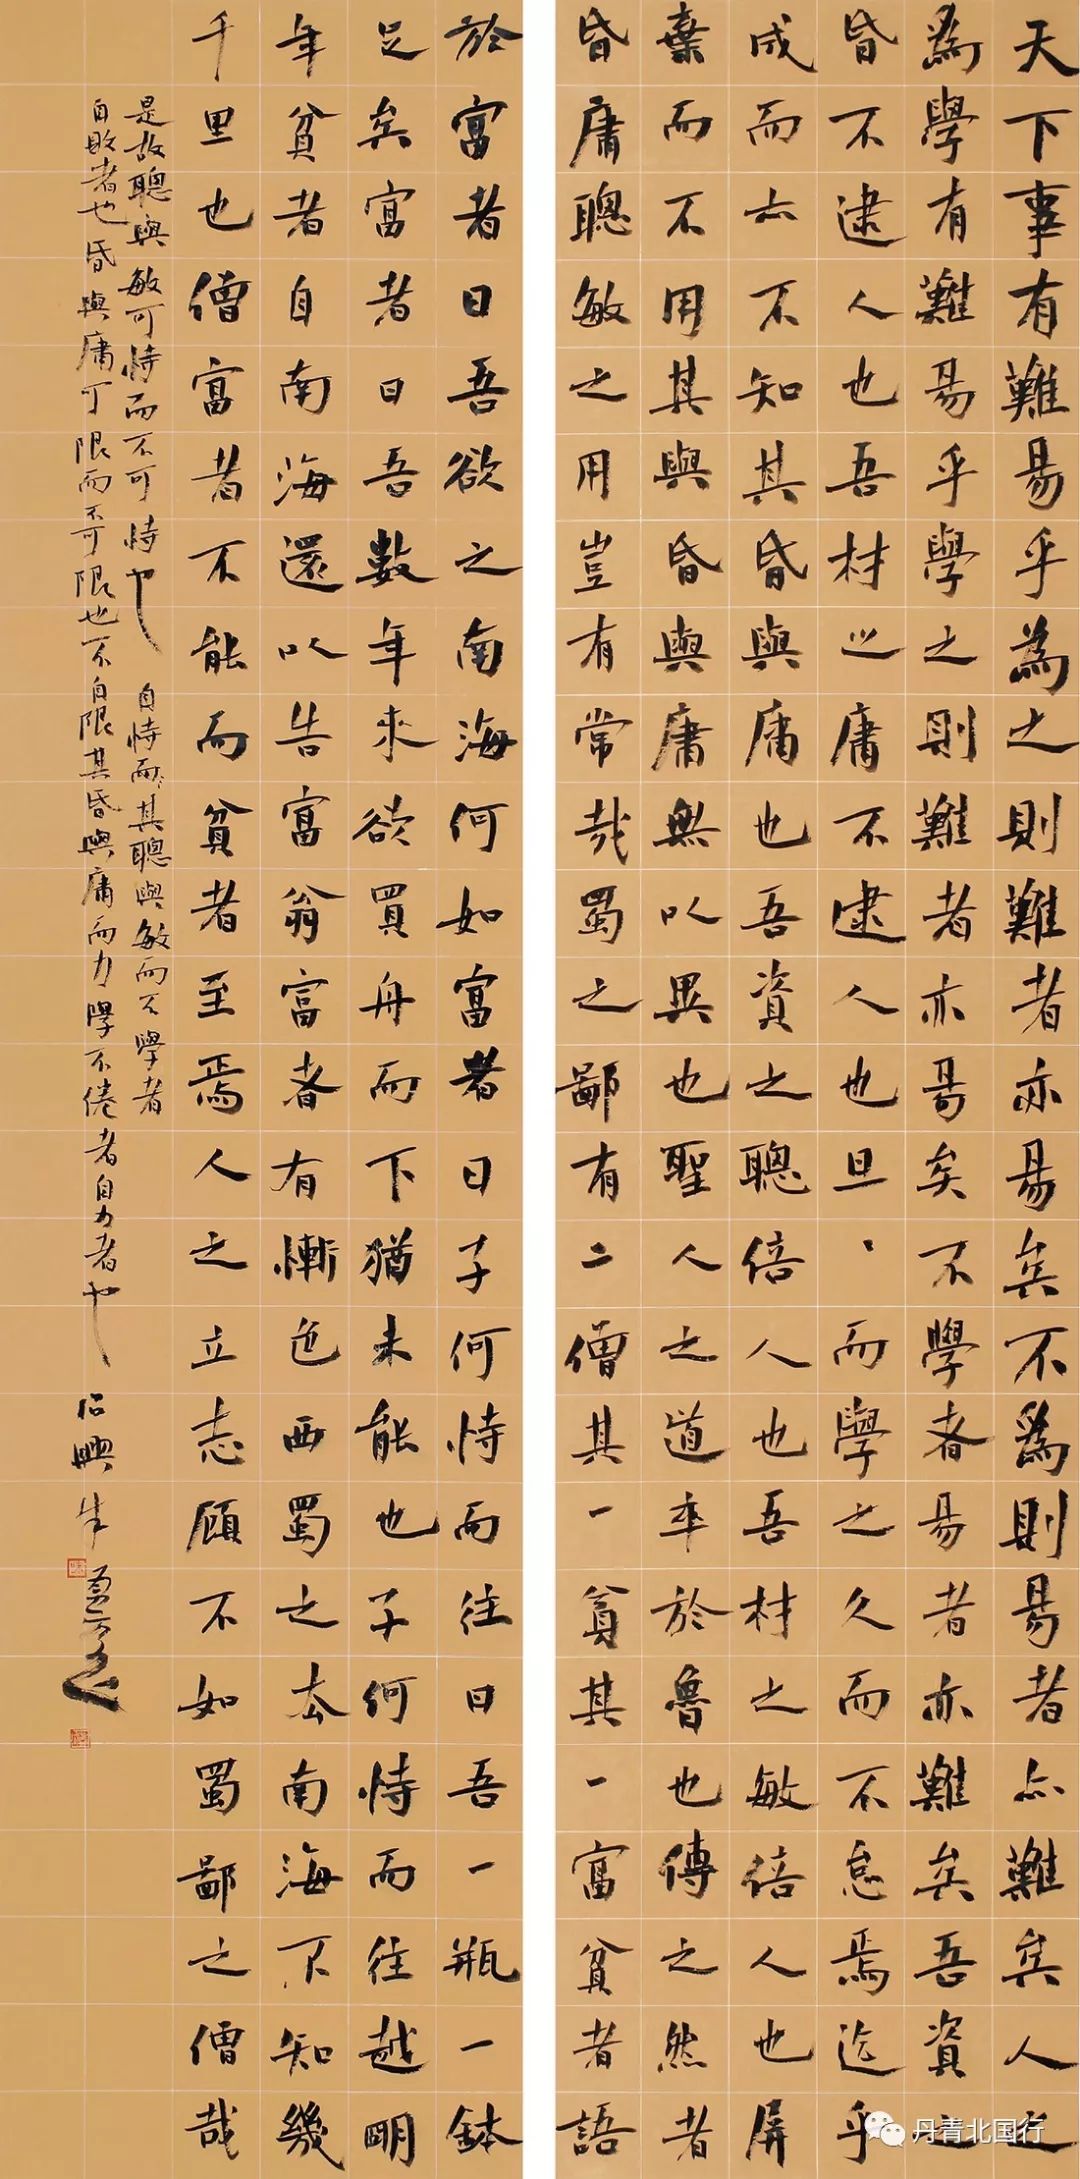 天下事有難易乎為之則難者亦易矣不爲則易者亦難矣人之
爲學有難易乎學之則難者亦易矣不學者易者亦難矣吾資之
昏不逮人也吾材之庸不逮人也旦丶而學之久而不怠焉迄乎
成而亦不知其昏與庸也吾資之聰倍人也吾材之敏倍人也屏
棄而不用其與昏與庸無以異也聖人之道卒於魯也傳之然者
昏庸聰敏之用豈有常哉蜀之鄙有二僧其一貧其一富貧者語
於富者曰吾欲之南海何如富者曰子何恃而往曰吾一瓶一鉢
足矣富者曰吾數年來欲買舟而下猶未能也子何恃而往越明
年貧者自南海還以告富翁富者有慚色西蜀之去南海不知幾
千里也僧富者不能而貧者至焉人之立志顧不如蜀鄙之僧哉
是故聰與敏可恃而不可恃也 自恃而丶其聰與敏而不學者
自敗者也昏與庸可限而不可限也不自限其昏與庸而力學不倦者自力者也
丹青北国行